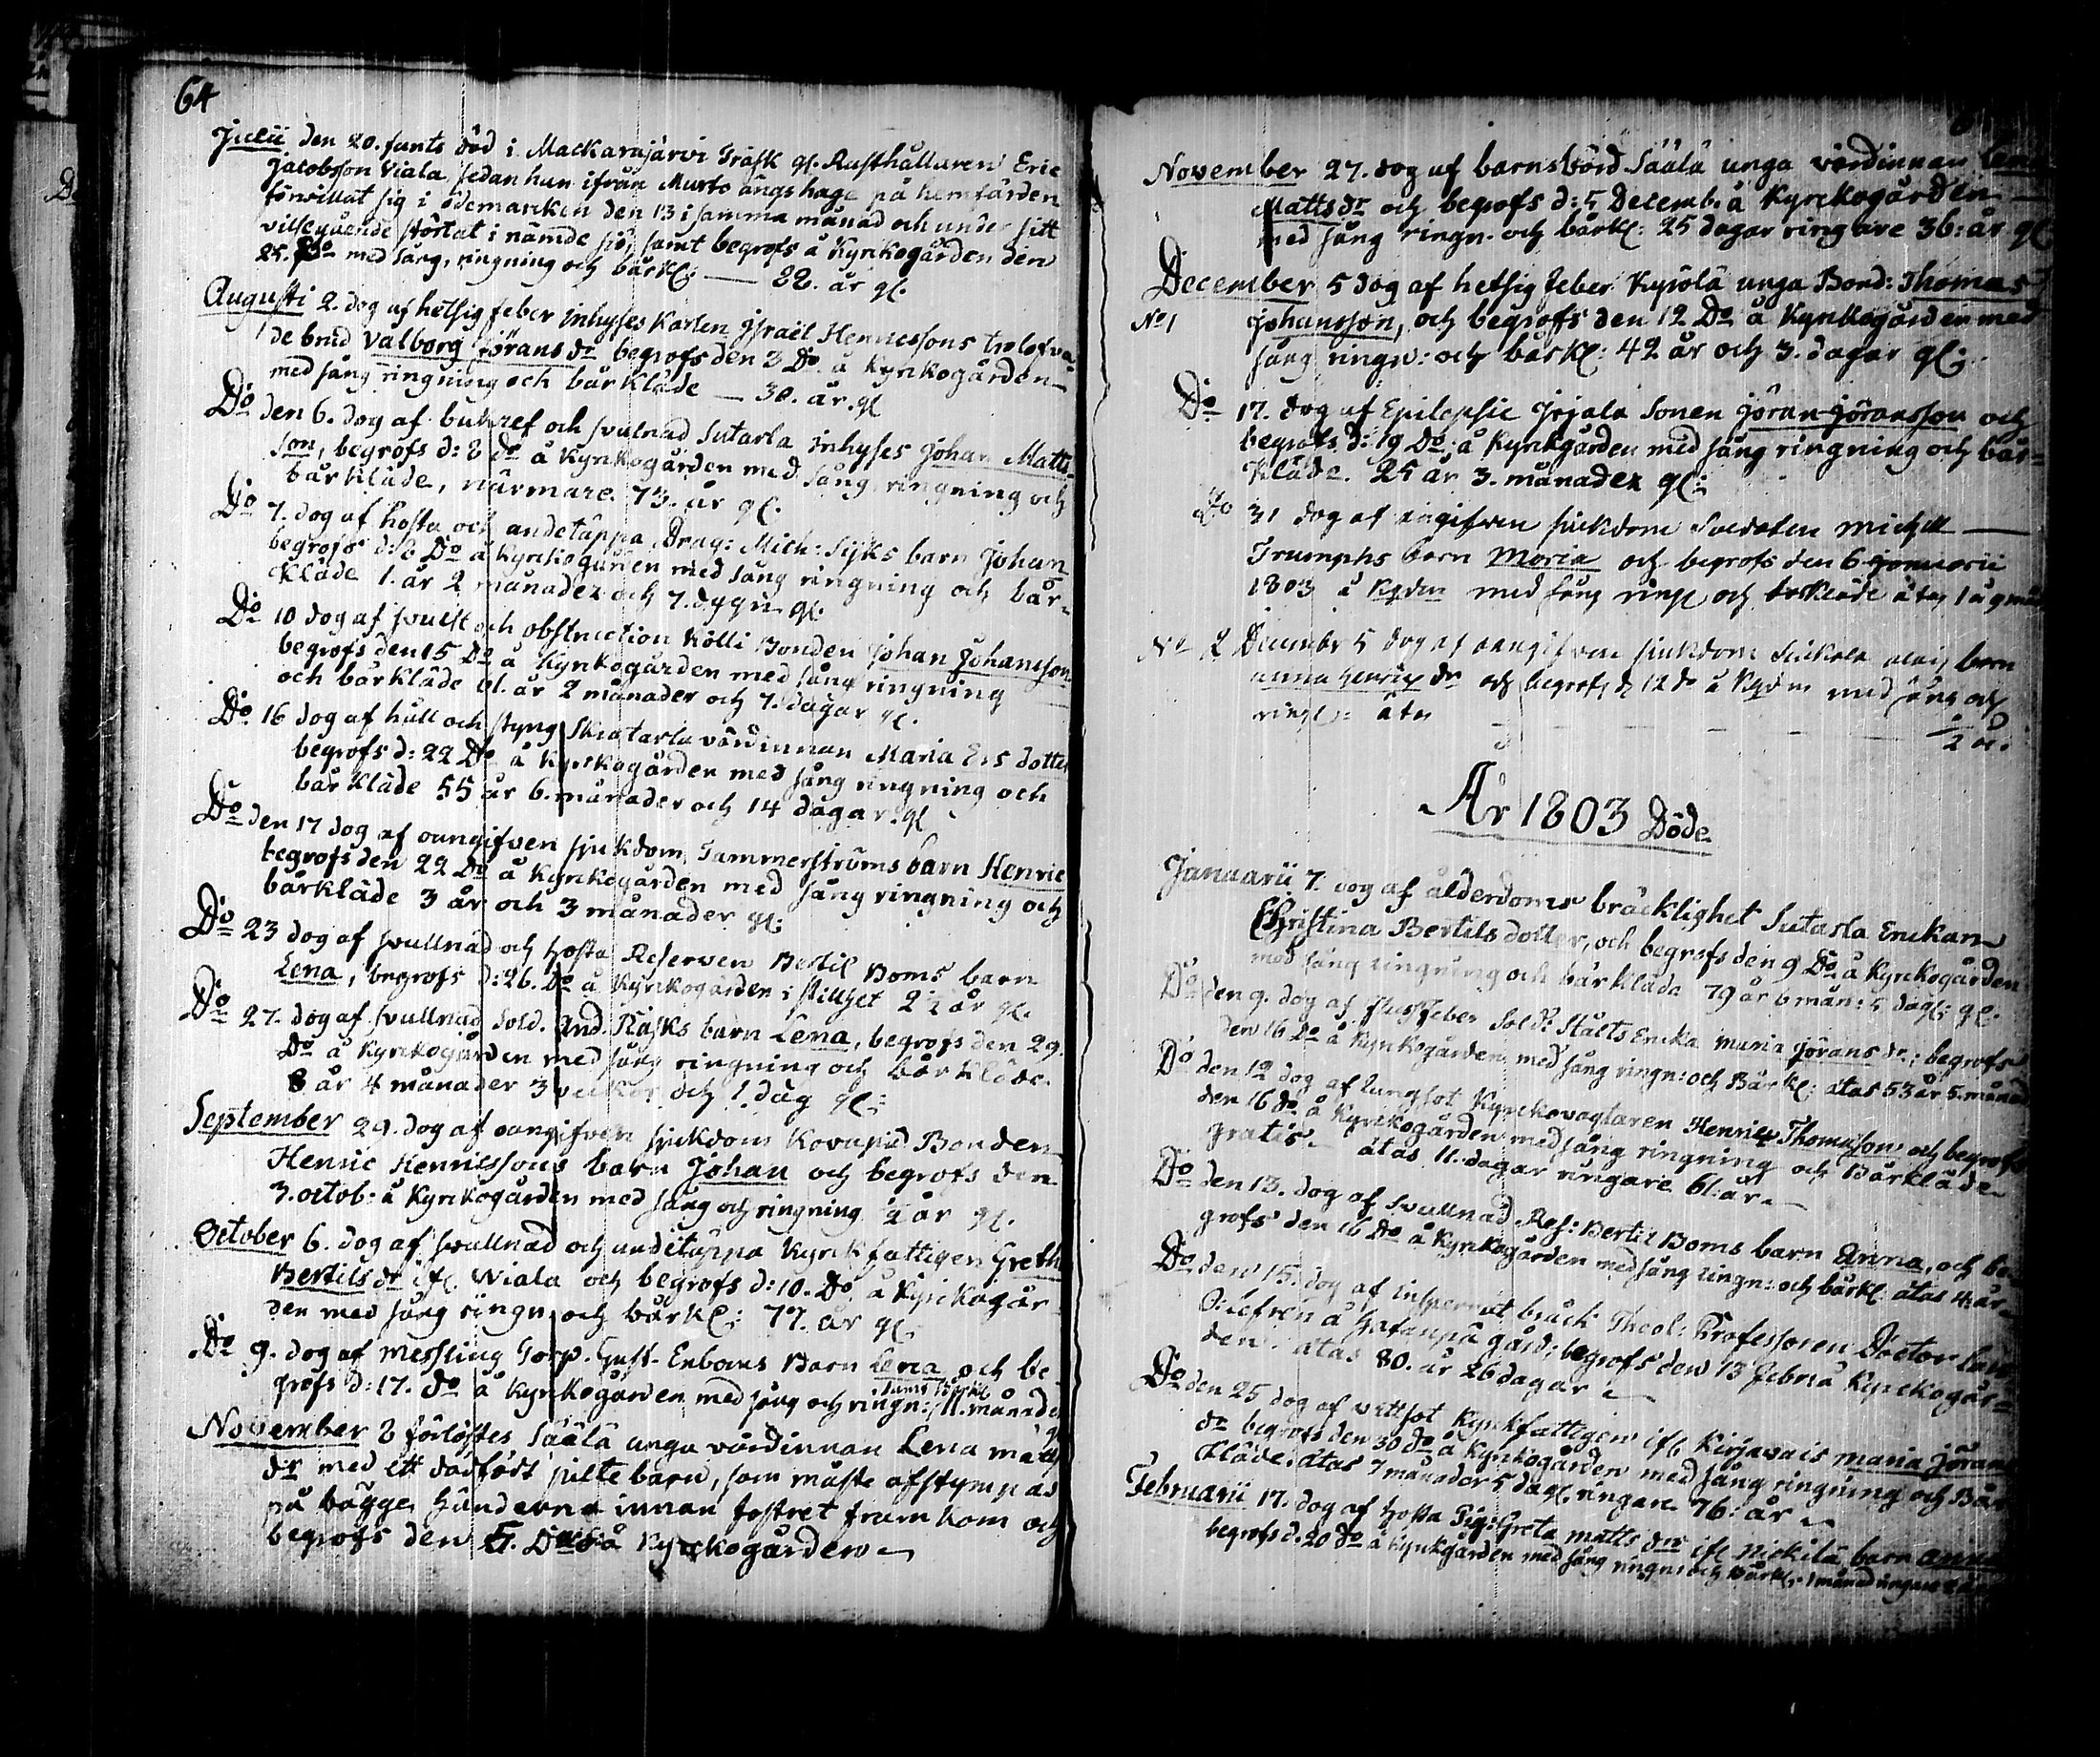 64
Julii den 20. fants död i Mackarajärvi Träsk gl. Rusthållaren Eric
Jacobsson Viala, sedan hun ifrån Murto ängshage på hemfärden
förvillat sig i ödemarcken den 13 i samma månad och under sitt
villseguående störtat i nämde sjö, samt begrofs å Kyrkogården den
25. Do med sång, ringning och bårkl: — 22. år gl.
Augusti 2. dog af hetsig feber Inhyses Karlen Israel Henricssons trolofva-
de brud Valborg Jörans dr begrofs den 3 Do. å Kyrkogården
med sång ringning och bårkläde — 30. år. gl
Do den 6. dog af bukref och svulnad Sutarla Inhyses Johan Matts
son, begrofs d: 8 do å Kyrkogården med sång, ringning och
bårkläde, närmare 73. år gl.
Do 7. dog af hosta och andetäppa, Drag: Mich: Sijks barn Johan
begrofs d: 8 Do å Kyrkogården med sång ringning och bår-
kläde 1. år 2 månader och 7. dygn gl.
Do 10 dog af svulst och obstruction Kölli Bonden Johan Johansson
begrofs den 15 Do å Kyrkogården med sång ringning
och bårkläde 61. år 2 månader och 7. dagar gl.
Do 16 dog af håll och styng Skratarla värdinnan Maria Ers dotter
begrofs d: 22 Do å Kyrkogården med sång ringning och
bårkläde 55 år 6. månader och 14 dagar. gl
Do den 17 dog af oangifven sjukdom, Tammerströms barn Henric
begrofs den 22 Do å Kyrkogården med sång ringning och
bårkläde 3 år och 3 månader gl:
Do 23 dog af svullnad och hosta Reserven Bertil Boms barn
Lena, begrofs d: 26. Do å Kyrkogården i stillhet 2 ½ år gl.
Do 27. dog af svullnad Sold. And. Rasks barn Lena, begrofs den 29.
Do å Kyrkogården med sång ringning och bårkläde.
8 år 4 månader 3 veckor och 1. dag gl:
September 29. dog af oangifven sjukdom Kovapää Bonden
Henric Henricssons barn Johan och begrofs den
3. octob: å Kyrkogården med sång och ringning ½ år gl.
October 6. dog af svullnad och andetäppa Kyrkfattigen Greta
Bertils dr ifl. Wiala och begrofs d: 10. Do å Kyrckogår-
den med sång ringn: och bårkl: 77. år gl.
Do 9. dog af messling Torp. Gust. Enboms Barn Lena och be-
grofs d: 17. do å Kyrkogården med sång och ringn: samt bårkl 11. månader
November 2 förlöstes Säälä unga värdinnan Lena Matts
dr med ett dödfödt piltebarn, som måste afstympas
på bägge händerna innan fostret framkom och
begrofs den 5. Do å Kyrckogården
November 27. dog af barnsbörd Säälä unga värdinnan Lena
Matts dr och begrofs d: 5 Decemb. å Kyrckogården —
med sång ringn. och bårkl: 25 dagar ringare 36: år gl
December 5 dog af hetsig feber Kyrölä unga Bond: Thomas
No 1 Johansson, och begrofs den 12 Do å Kyrckogården med
sång ringn: och bårkl: 42 år och 3. dagar gl:
Do 17. dog af Epilepsie Jrjala Sonen Jöran Jöransson och
begrofs d: 19 Do: å Kyrkgården med sång ringning och bår-
kläde. 25 år 3. månader gl:
Do 31 dog af angifven sjukdom Soldaten Michell —
Trumphs barn Maria och begrofs den 6 Januarii
1803 å Kgden med sång ring och bårkläde ätas 1 år 9 mån
No 2 December 5 dog af oangifven sjukdom barn
Anna Henrics dr och begrofs d 12 do å Kgden med sång och
ringn: ätas — — — ½ år.
År 1803 Döde
Januarii 7. dog af ålderdoms bräcklighet Sutarla Enckan
Christina Bertils dotter, och begrofs den 9 Do: å Kyrckogården
med sång ringning och bårkläde 79 år 6 mån: 5 dag: gl.
Do den 9. dog af flussfeber Sold: Ståhls Encka Maria Jörans dr; begrofs
den 16 Do å Kyrkogården med sång ringn: och Bårkl: ätas 53 år 5. månad
Do den 12 dog af lungsot Kyrckovagtaren Henric Thomasson och begrofs
den 16 do å Kyrkogården med sång ringning och Bårkläde
gratis. ätas 11. dagar ringare 61: år.
Do den 13. dog af Svullnad, Res: Bertil Boms barn Anna, och be-
grofs den 16 Do å Kyrkogården med sång ringn: och bårkl. ätas 4: år
Do den 15. dog af inspärrat bråck Theol: Professoren Doctor
å gård; begrofs den 13 Febr: å Kyrckogår-
den. ätas 80. år 26 dagar
Do den 25 dog af vattsot Kyrkfattigen ifl Kirjavais Maria Jörans
dr begrofs den 30 do å Kyrkogården med sång ringning och Bår
kläde. ätas 7 månader 5 dag. ringare 76: år
Februarii 17. dog af hosta Pig: Greta Matts drs ifl Nickilä barn Anna
begrofs d: 20 do å Kyrkgården med sång ringn: och bårkl: 1 månad ringare